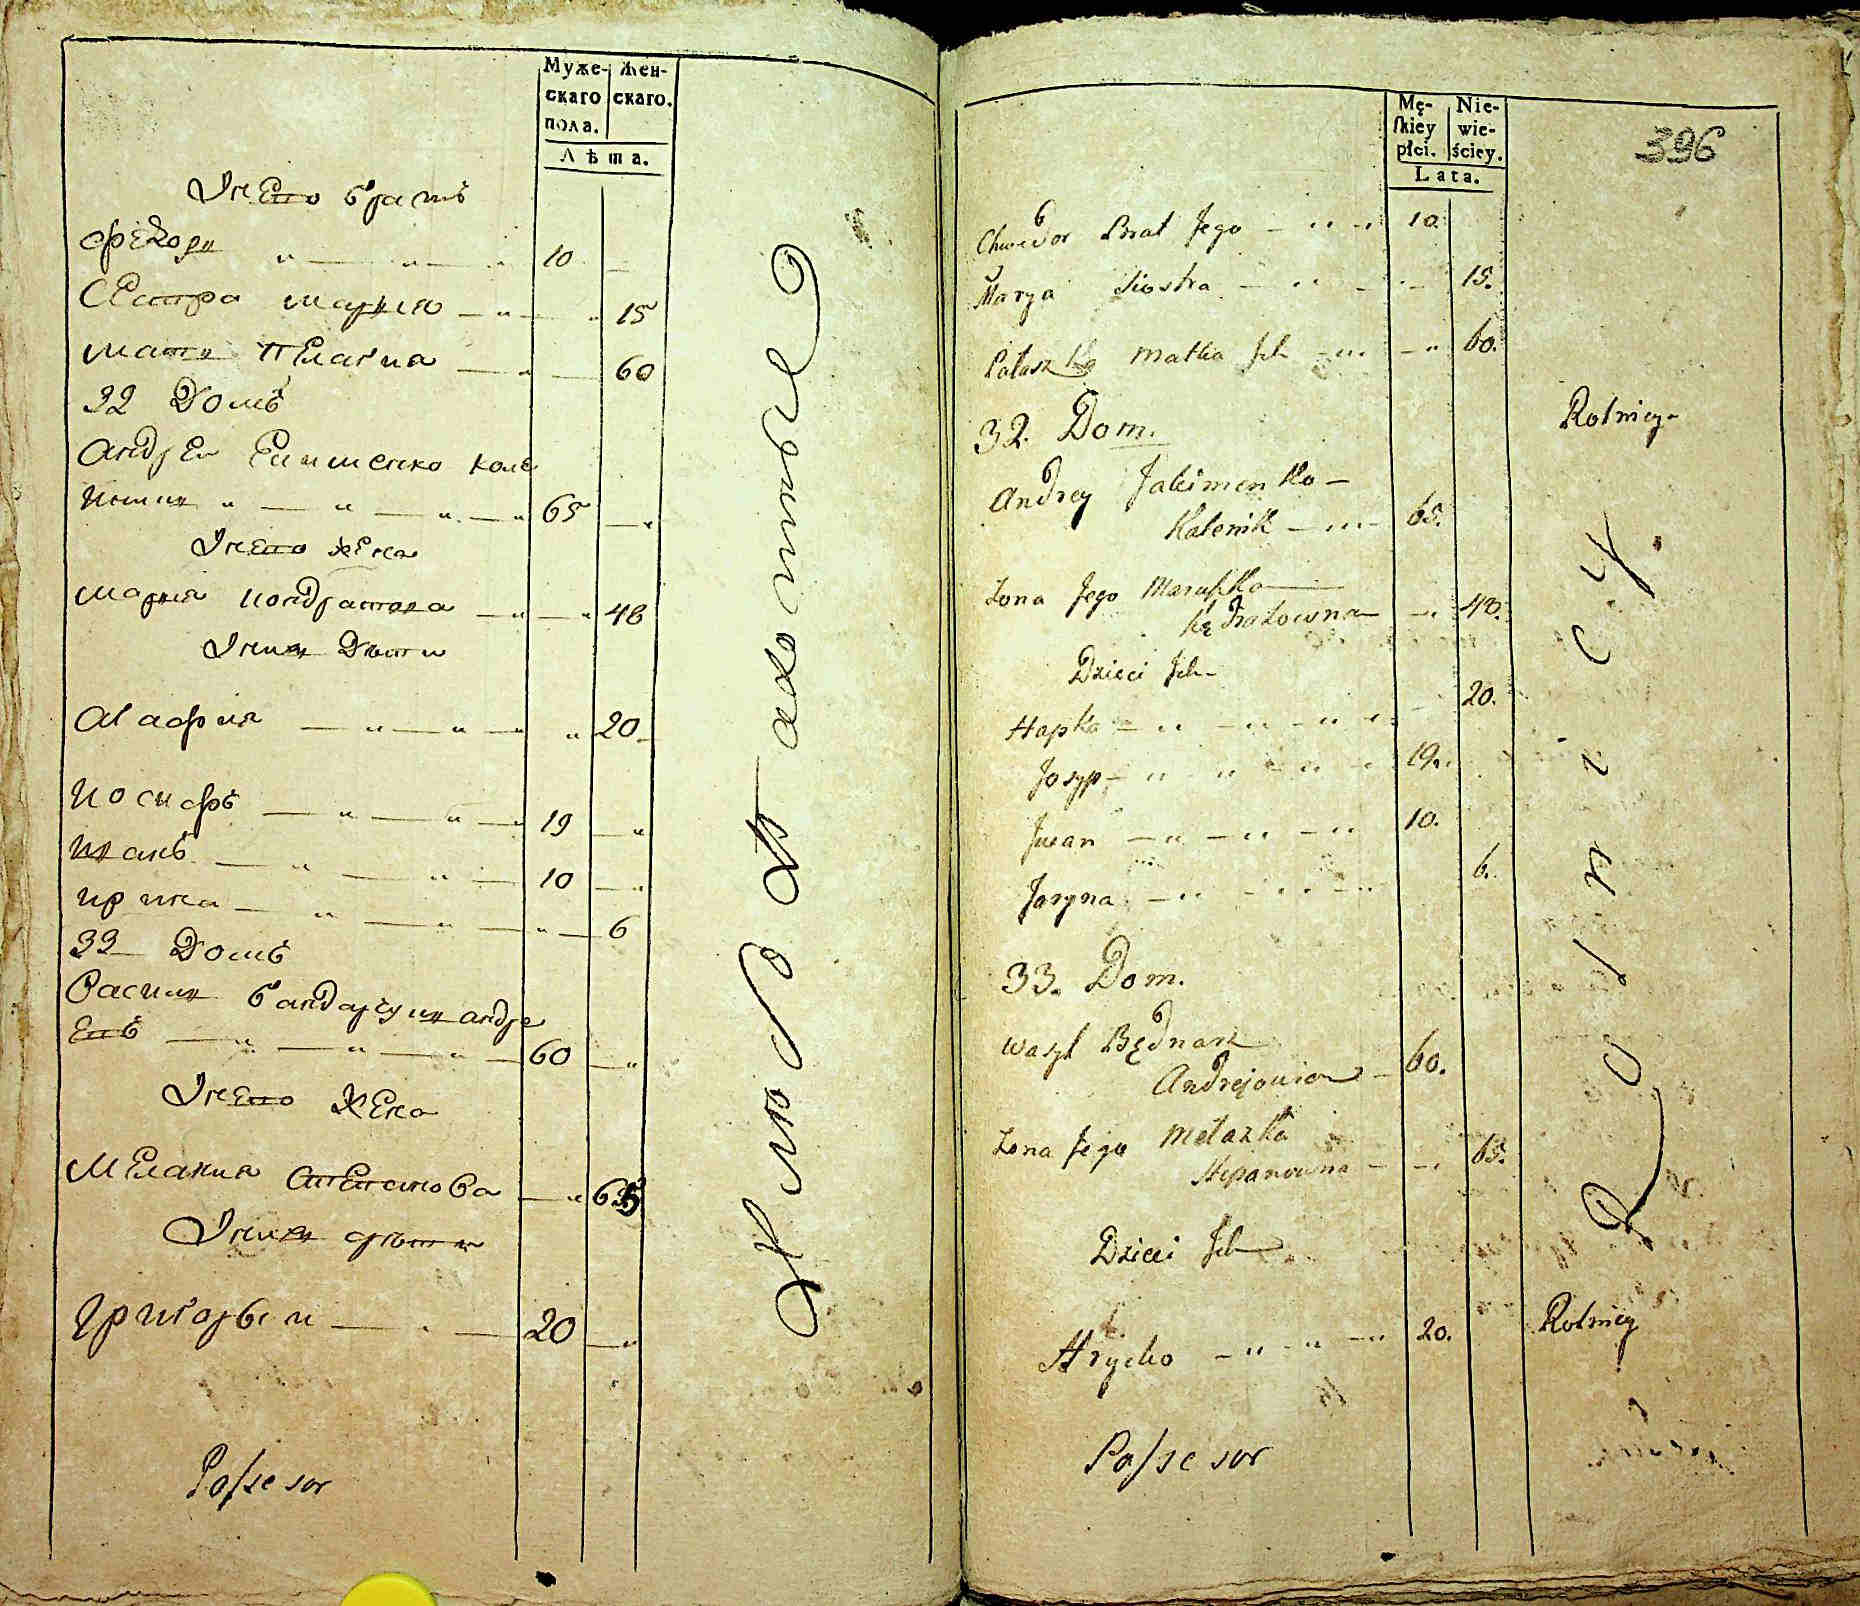 Муже-
скаго
пола.
Жен-
скаго.
Лѣта.
Ично братъ
Федоръ 10
Сестра Мария 15
мати Пелагиа 60
32 Домъ
Андрей Екименко Кале
65
жена
Мария Кондратова 48
Дѣти
Агафия 20
Иосифъ 19
Иванъ 10
ирина 6
33 Домъ
Василь бандарчукъ андре
евъ 60
жена
Мелания Степанова 65
дѣти
Григорѣи 20
Possesor
Mę-
skiey
płci.
Nie-
wie-
ściey.
Lata.
396
Chwedor Brat Jego 10.
Marya Siostra 15.
Pałaszka Matka Ich 60.
32. Dom.
Rolnicy
Andrey Jakimenko
Kalenik 65.
Zona Jego Maruszka
Kędratowna 48.
Dzieci Ich
Hapka 20.
Josyp 19.
Iwan 10.
Jaryna 6.
33. Dom.
Wasyl Będnarz
Andrejowicz 60.
Zona Jego Melaszka
Stepanowna 65.
Dzieci Ich
Hrycko 20.
Rolnicy
Possesor
Rolnicy